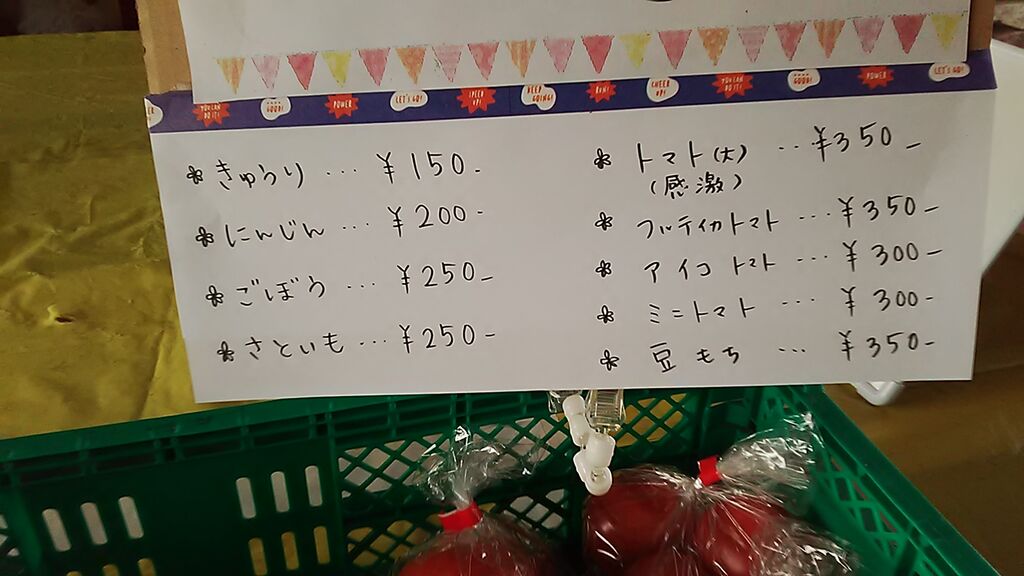 YOU CAN DO IT!
GOOD!
POWER
LET'S GO!
KEEP GOING!
RUN!
CHEER UP!
YOU CAN DO IT!
GOOD!
POWER
LET'S GO!
きゅうり … ¥150-
にんじん … ¥200-
ごぼう … ¥250-
さといも … ¥250-
トマト(大) … ¥350-
(感激)
フルティカトマト … ¥350-
アイコトマト … ¥300-
ミニトマト … ¥300-
豆もち … ¥350-